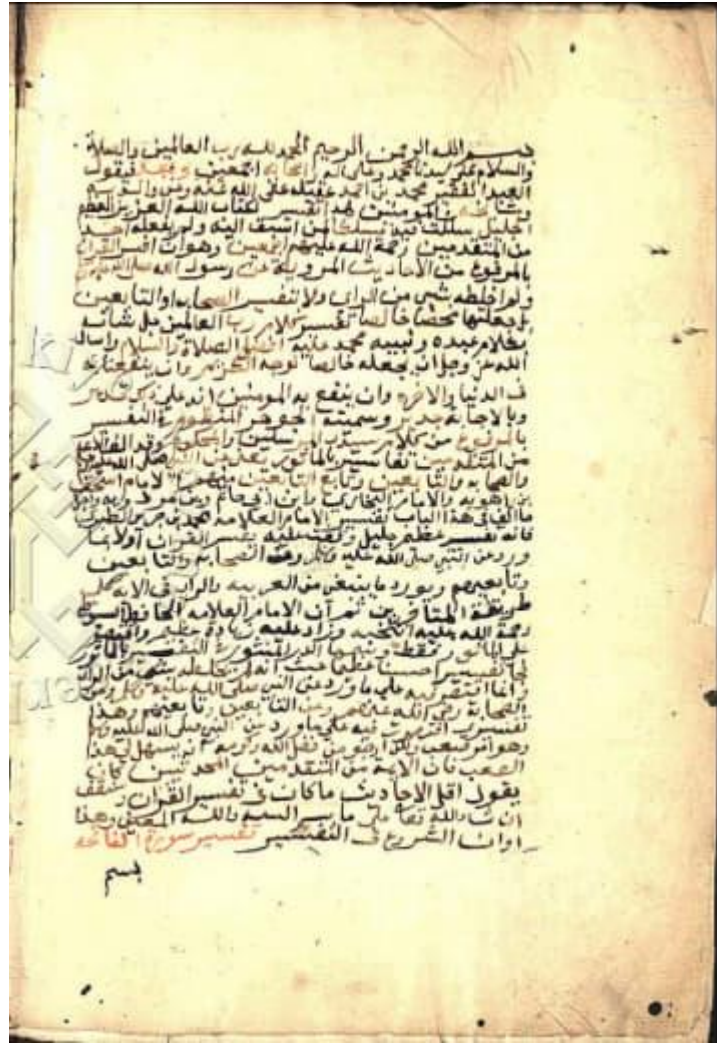 بسم الله الرحمن الرحيم الحمد لله رب العالمين والصلاة
والسلام على سيدنا محمد وعلى اله واصحابه اجمعين وبعد فيقول
العبد الفقير محمد بن احمد عقيله عفى الله عنه وعن والديه
المومنين هذا تفسير لكتاب الله العزيز العظيم
الجليل سلكت فيه مسلكا من اسبق اليه ولم يفعله احد
من المتقدمين رحمة الله عليهم اجمعين وهو ان افسر القران
بالمرفوع من الاحاديث المروية عن رسول الله صلى الله عليه وسلم
ولم اخلطه بشي من الراي ولا تفسير الصحابه او التابعين
بل جعلتها محضا خالصا تفسير كلام رب العالمين جل شانه
بكلام عبده ونبيه محمد عليه افضل الصلاة والسلام واسال
الله عز وجل ان يجعله خالصا لوجه الكريم وان ينفعنا به
في الدنيا والاخره وان ينفع به المومنين انه على ذلك قادر
وبالاجابة جدير وسميته الجوهر المنظوم في التفسير
بالمرفوع من كلام سيد المرسلين والمحكوم وقد الف
من المتقدمين تفاسير بالماثور عن النبي صلى الله عليه وسلم
والصحابه والتابعين وتابع التابعين منهم الامام اسحق
بن راهويه والامام البخاري وابن ابي حاتم وابن مردويه
ما الف في هذا الباب تفسير الامام العلامه محمد بن جرير الطبري
فانه تفسير عظيم جليل وقفت عليه يفسر القران اولا بما
ورد عن النبي صلى الله عليه وسلم وعن الصحابه والتابعين
وتابعيهم ويورد ما ينبغي من العربيه والراي في الايه على
طريقة المتاخرين ثم ان الامام العلامه الحافظ السيوطي
رحمة الله عليه انتخبه وزاد عليه زيادة عظيم واقتصر
على الماثور فقط وسماه الدر المنثور في التفسير بالماثور
فجا تفسيرا حسنا عظيما حيث انه لم يخلطه بشي من الراي
وانما اقتصر فيه على ما ورد عن النبي صلى الله عليه وسلم وعن
الصحابة رضي الله عنهم وعن التابعين وتابعيهم وهذا
تفسير اقتصرت فيه على ما ورد عن النبي صلى الله عليه وسلم
وهو امر صعب ولكن ارجو من فضل الله وكرمه ان يسهل لي هذا
الصعب فان الايمة من المتقدمين المحدثين كان
يقول اقل الاحاديث ما كان في تفسير القران وستقف
ان شا الله تعالى على ما يسر السميع والله المعين وهذا
اوان الشروع في التفسير تفسير سورة الفاتحه
بسم